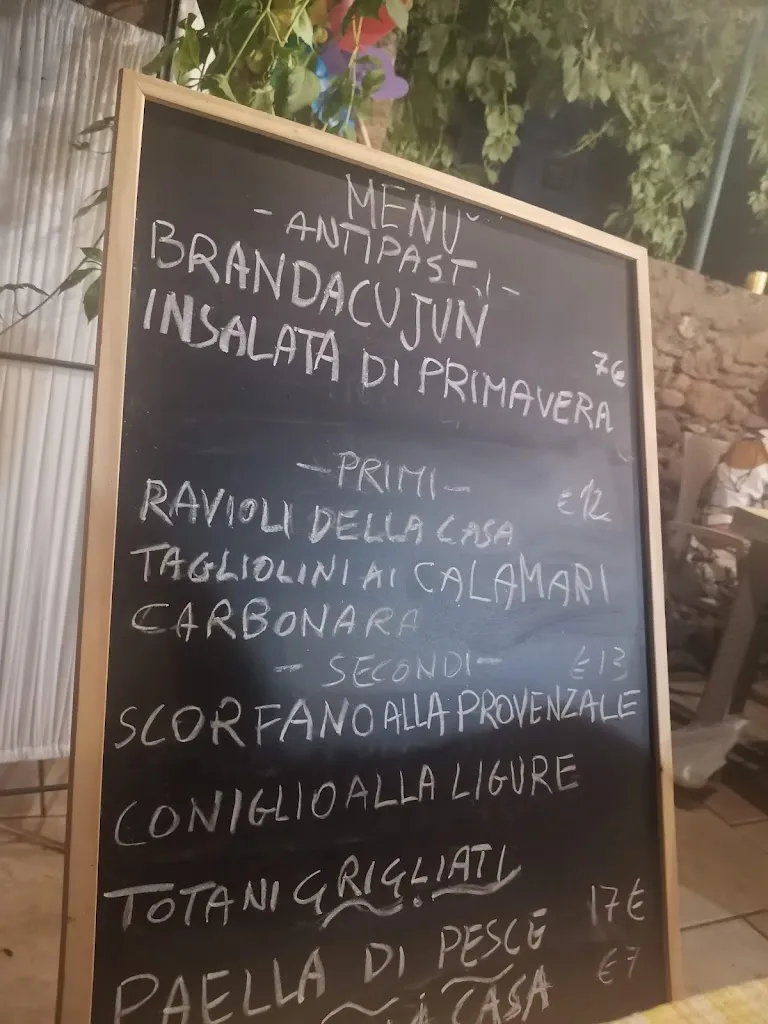 MENÙ
- ANTIPASTI -
BRANDACUJUN
INSALATA DI PRIMAVERA 7€
- PRIMI - €12
RAVIOLI DELLA CASA
TAGLIOLINI AI CALAMARI
CARBONARA
- SECONDI - €13
SCORFANO ALLA PROVENZALE
CONIGLIO ALLA LIGURE
TOTANI GRIGLIATI
PAELLA DI PESCE 17€
CASA €7